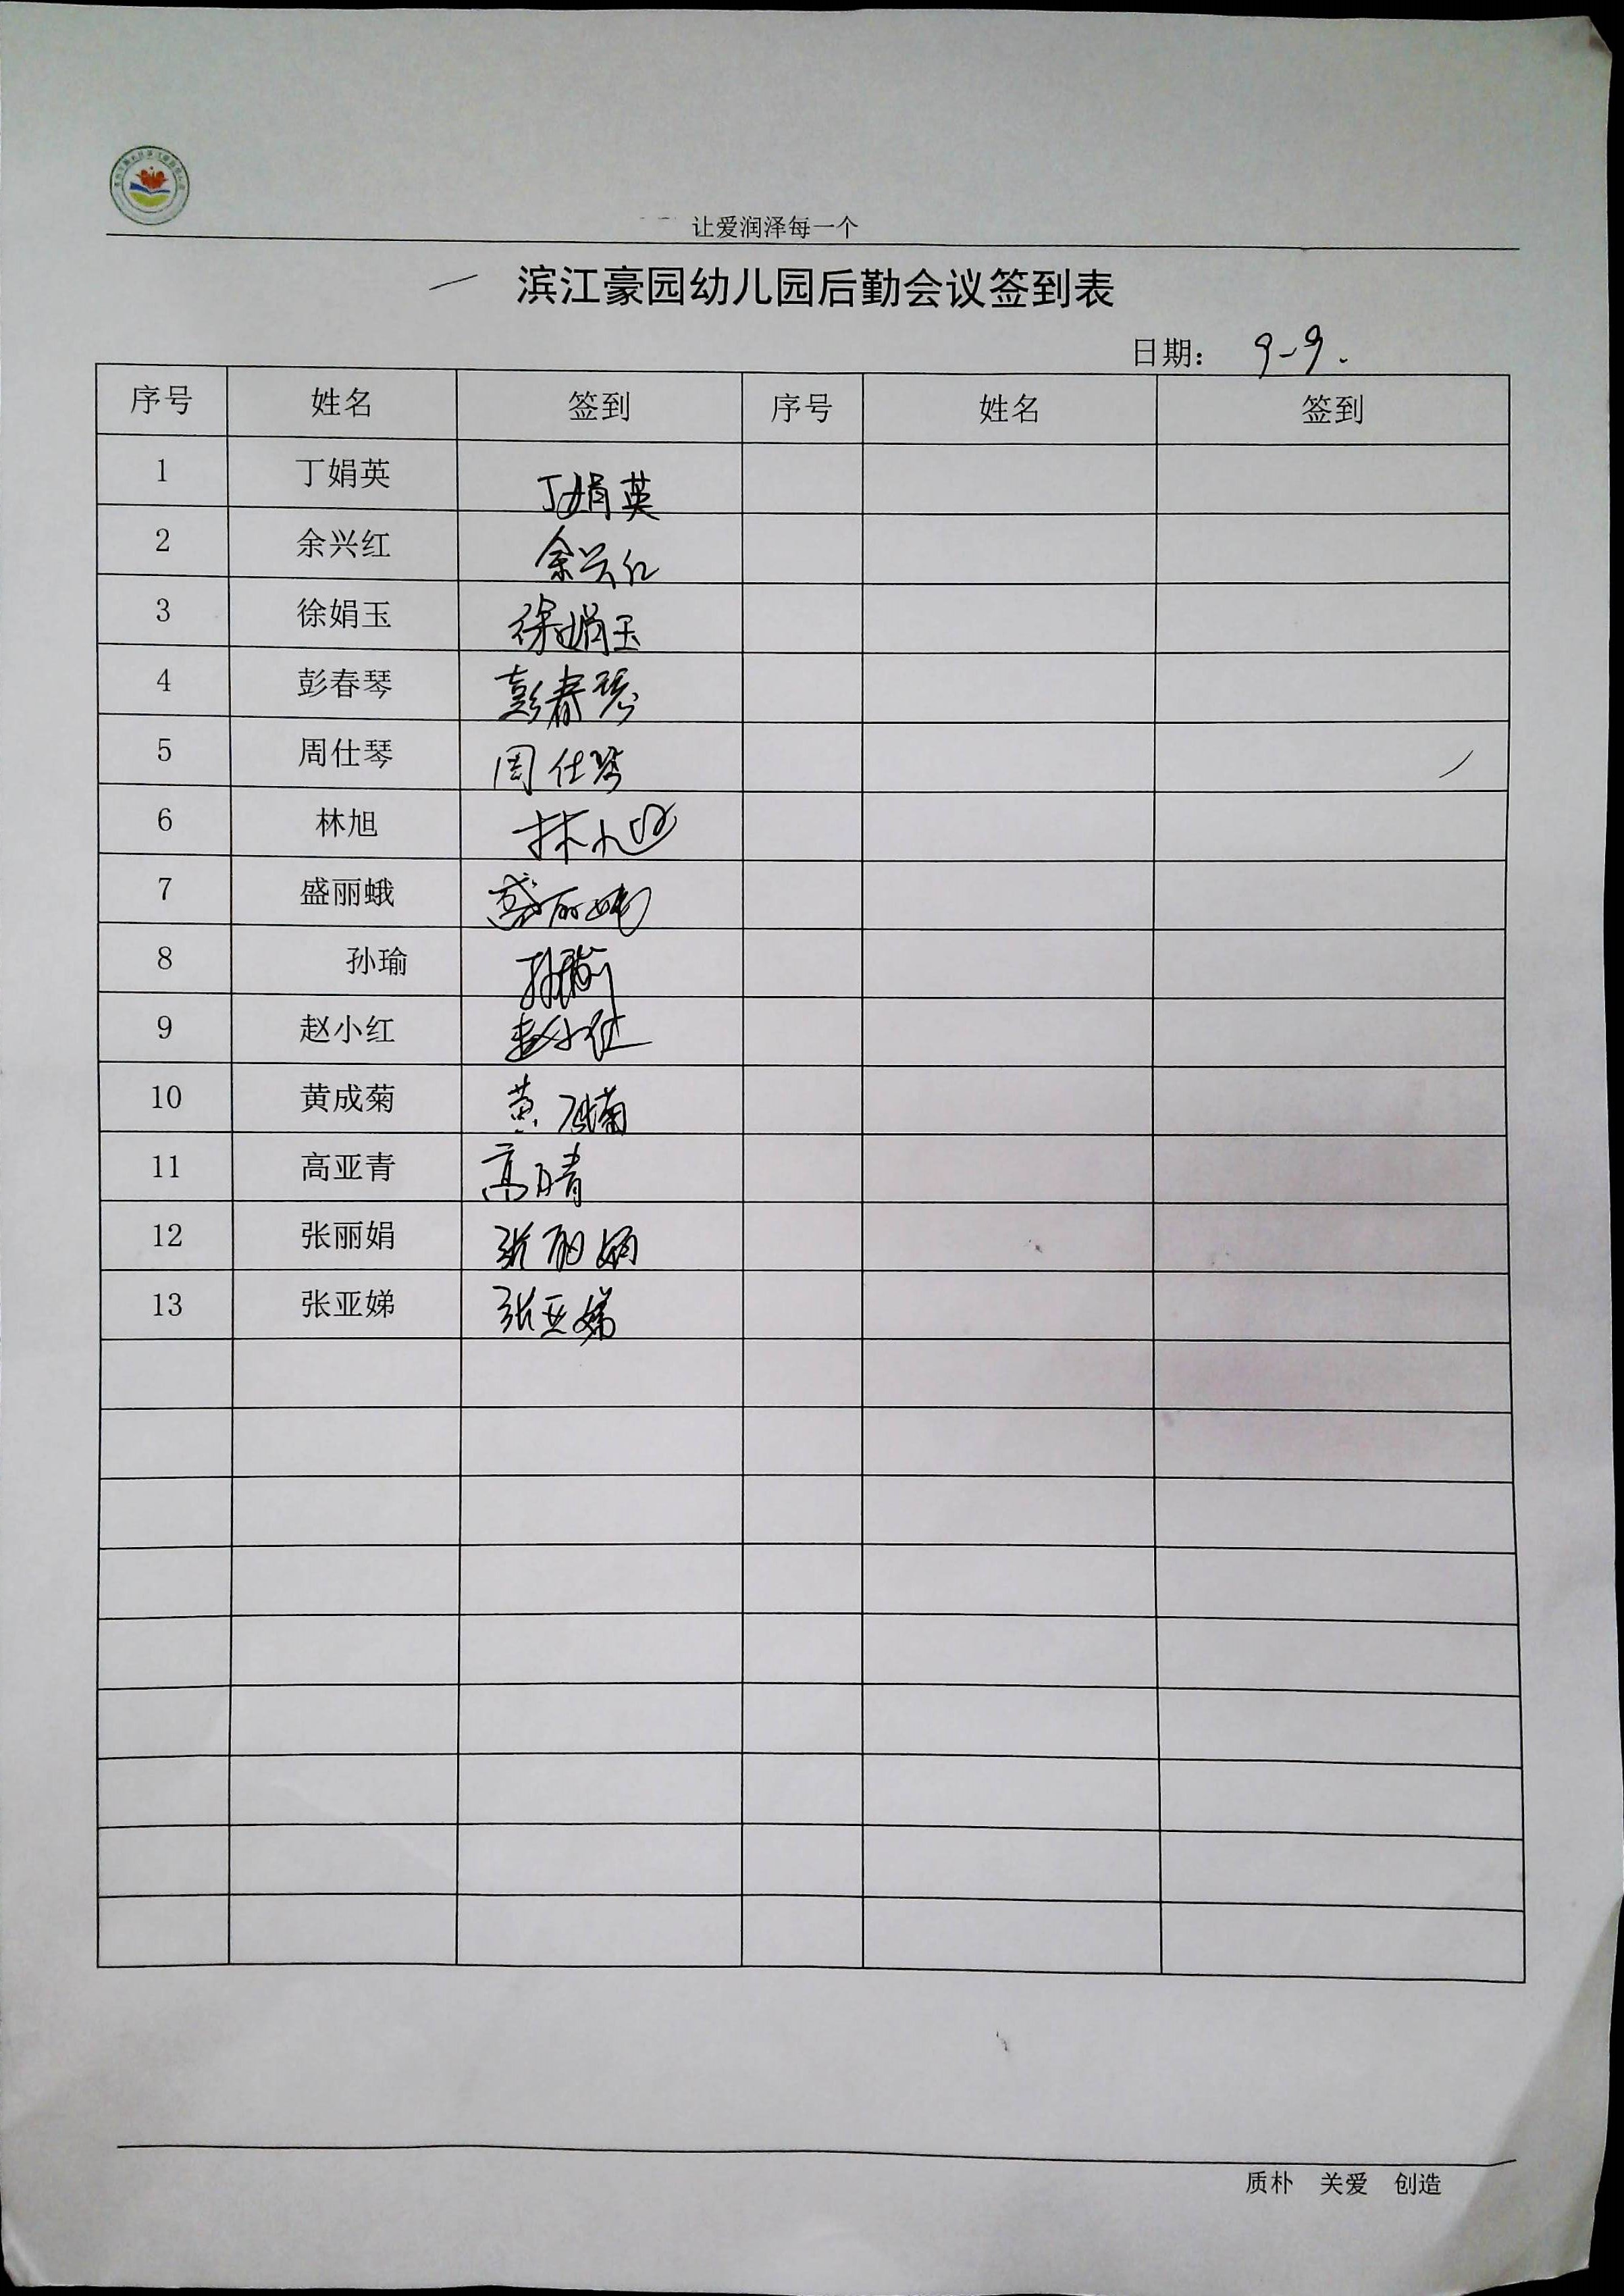 让爱润泽每一个
滨江豪园幼儿园后勤会议签到表
日期： 9-9.
序号 姓名 签到 序号 姓名 签到
1 丁娟英 丁娟英
2 余兴红 余兴红
3 徐娟玉 徐娟玉
4 彭春琴 彭春琴
5 周仕琴 周仕琴
6 林旭 林旭
7 盛丽蛾 盛丽娥
8 孙瑜 孙瑜
9 赵小红 赵小红
10 黄成菊 黄成菊
11 高亚青 高青
12 张丽娟 张丽娟
13 张亚娣 张亚娣
质朴 关爱 创造